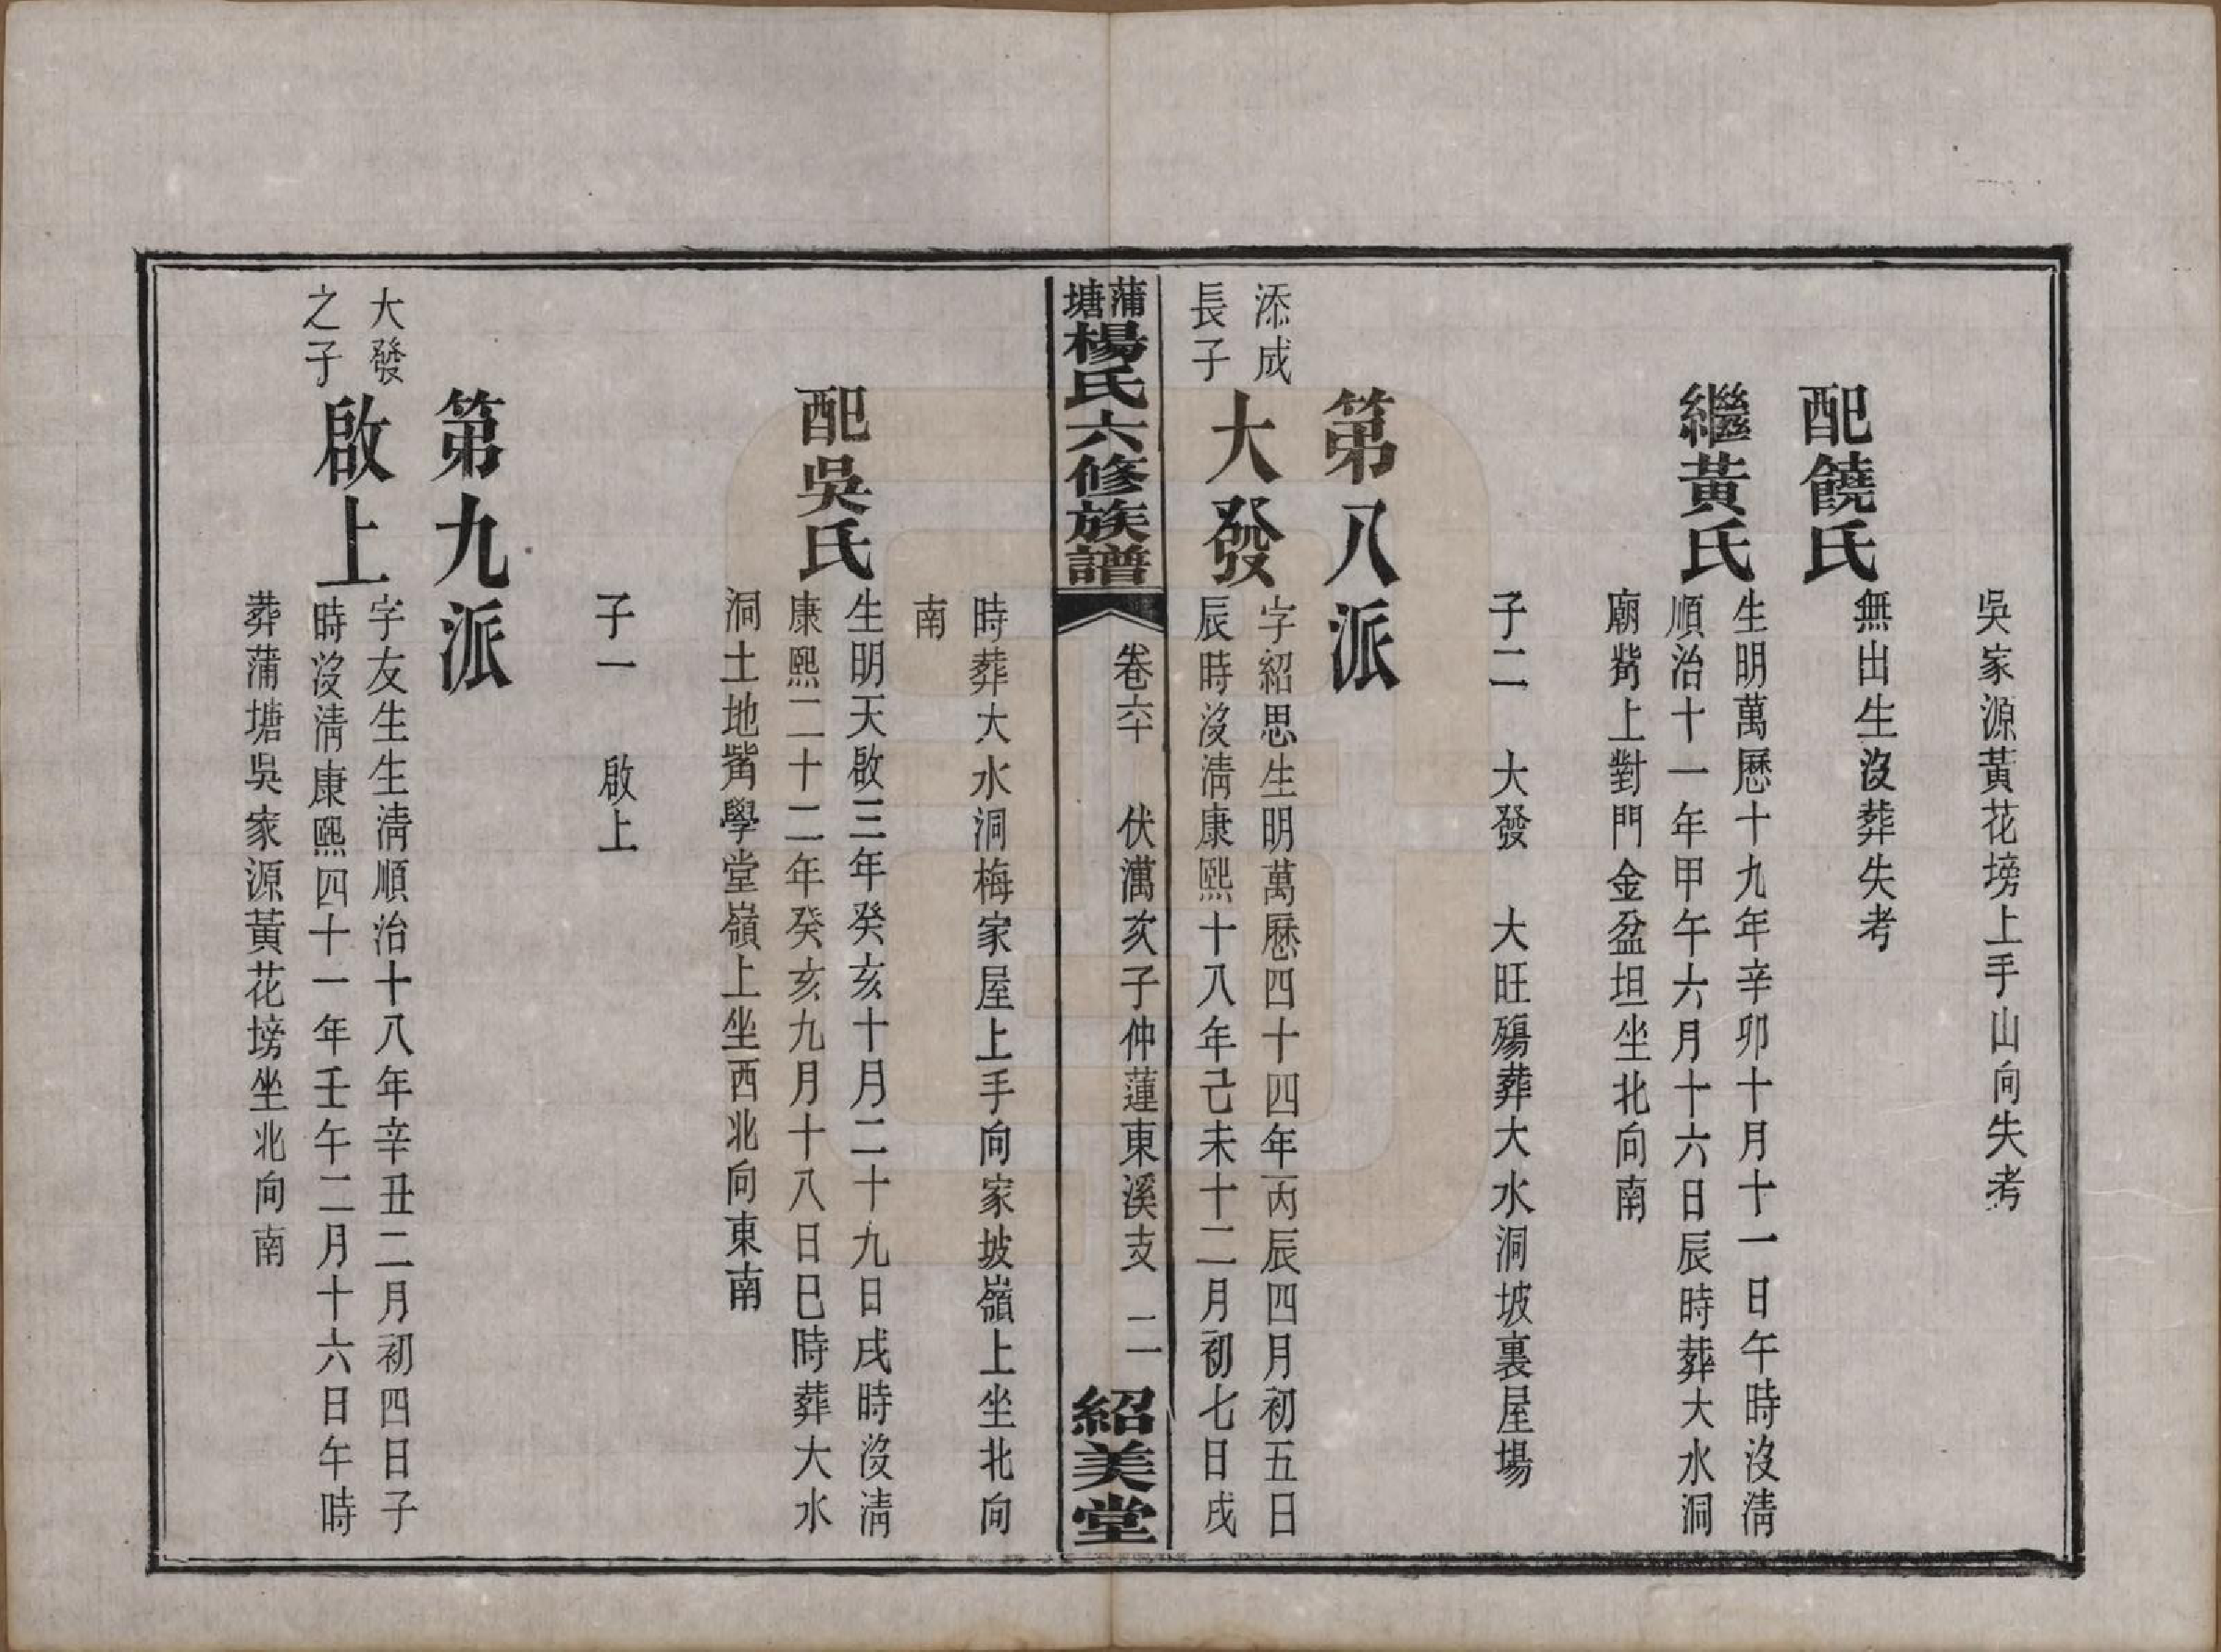 吳家源黃花塝上手山向失考
配饒氏
無出生沒葬失考
繼黃氏
生明萬曆十九年辛卯十月十一日午時沒淸
順治十一年甲午六月十六日辰時葬大水洞
廟觜上對門金盆坦坐北向南
子二　大發　大旺殤葬大水洞坡裏屋場
第八派
添成
長子
大發
字紹思生明萬曆四十四年丙辰四月初五日
辰時沒淸康熙十八年己未十二月初七日戌
蒲塘楊氏六修族譜
卷六十　伏萬亥子仲蓮東溪支　二
紹美堂
時葬大水洞梅家屋上手向家坡嶺上坐北向
南
配吳氏
生明天啟三年癸亥十月二十九日戌時沒淸
康熙二十二年癸亥九月十八日巳時葬大水
洞土地觜學堂嶺上坐西北向東南
子一　啟上
第九派
大發
之子
啟上
字友生生淸順治十八年辛丑二月初四日子
時沒淸康熙四十一年壬午二月十六日午時
葬蒲塘吳家源黃花塝坐北向南